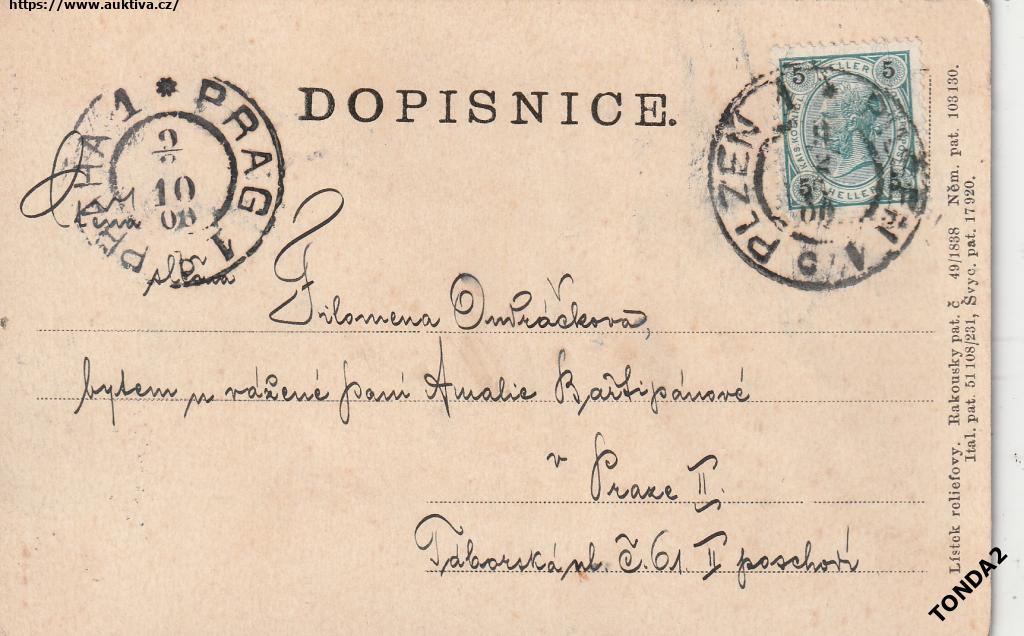 https://www.auktiva.cz/
DOPISNICE.
PRAHA 1 * PRAG 1
2
10
00
PLZEŇ 1
PILSEN 1
5 HELLER 5
5 HELLER 5
slečna
Filomena Ondráčková,
bytem u vážené paní Amalie Bařtipánové
v
Praze II.
Táborská ul. Č. 61. II poschoví
Lístek reliefovy. Rakousky pat. č 49/1838 Něm. pat. 103130.
Ital. pat. 51108/231, Švyc. pat. 17920.
TONDA2